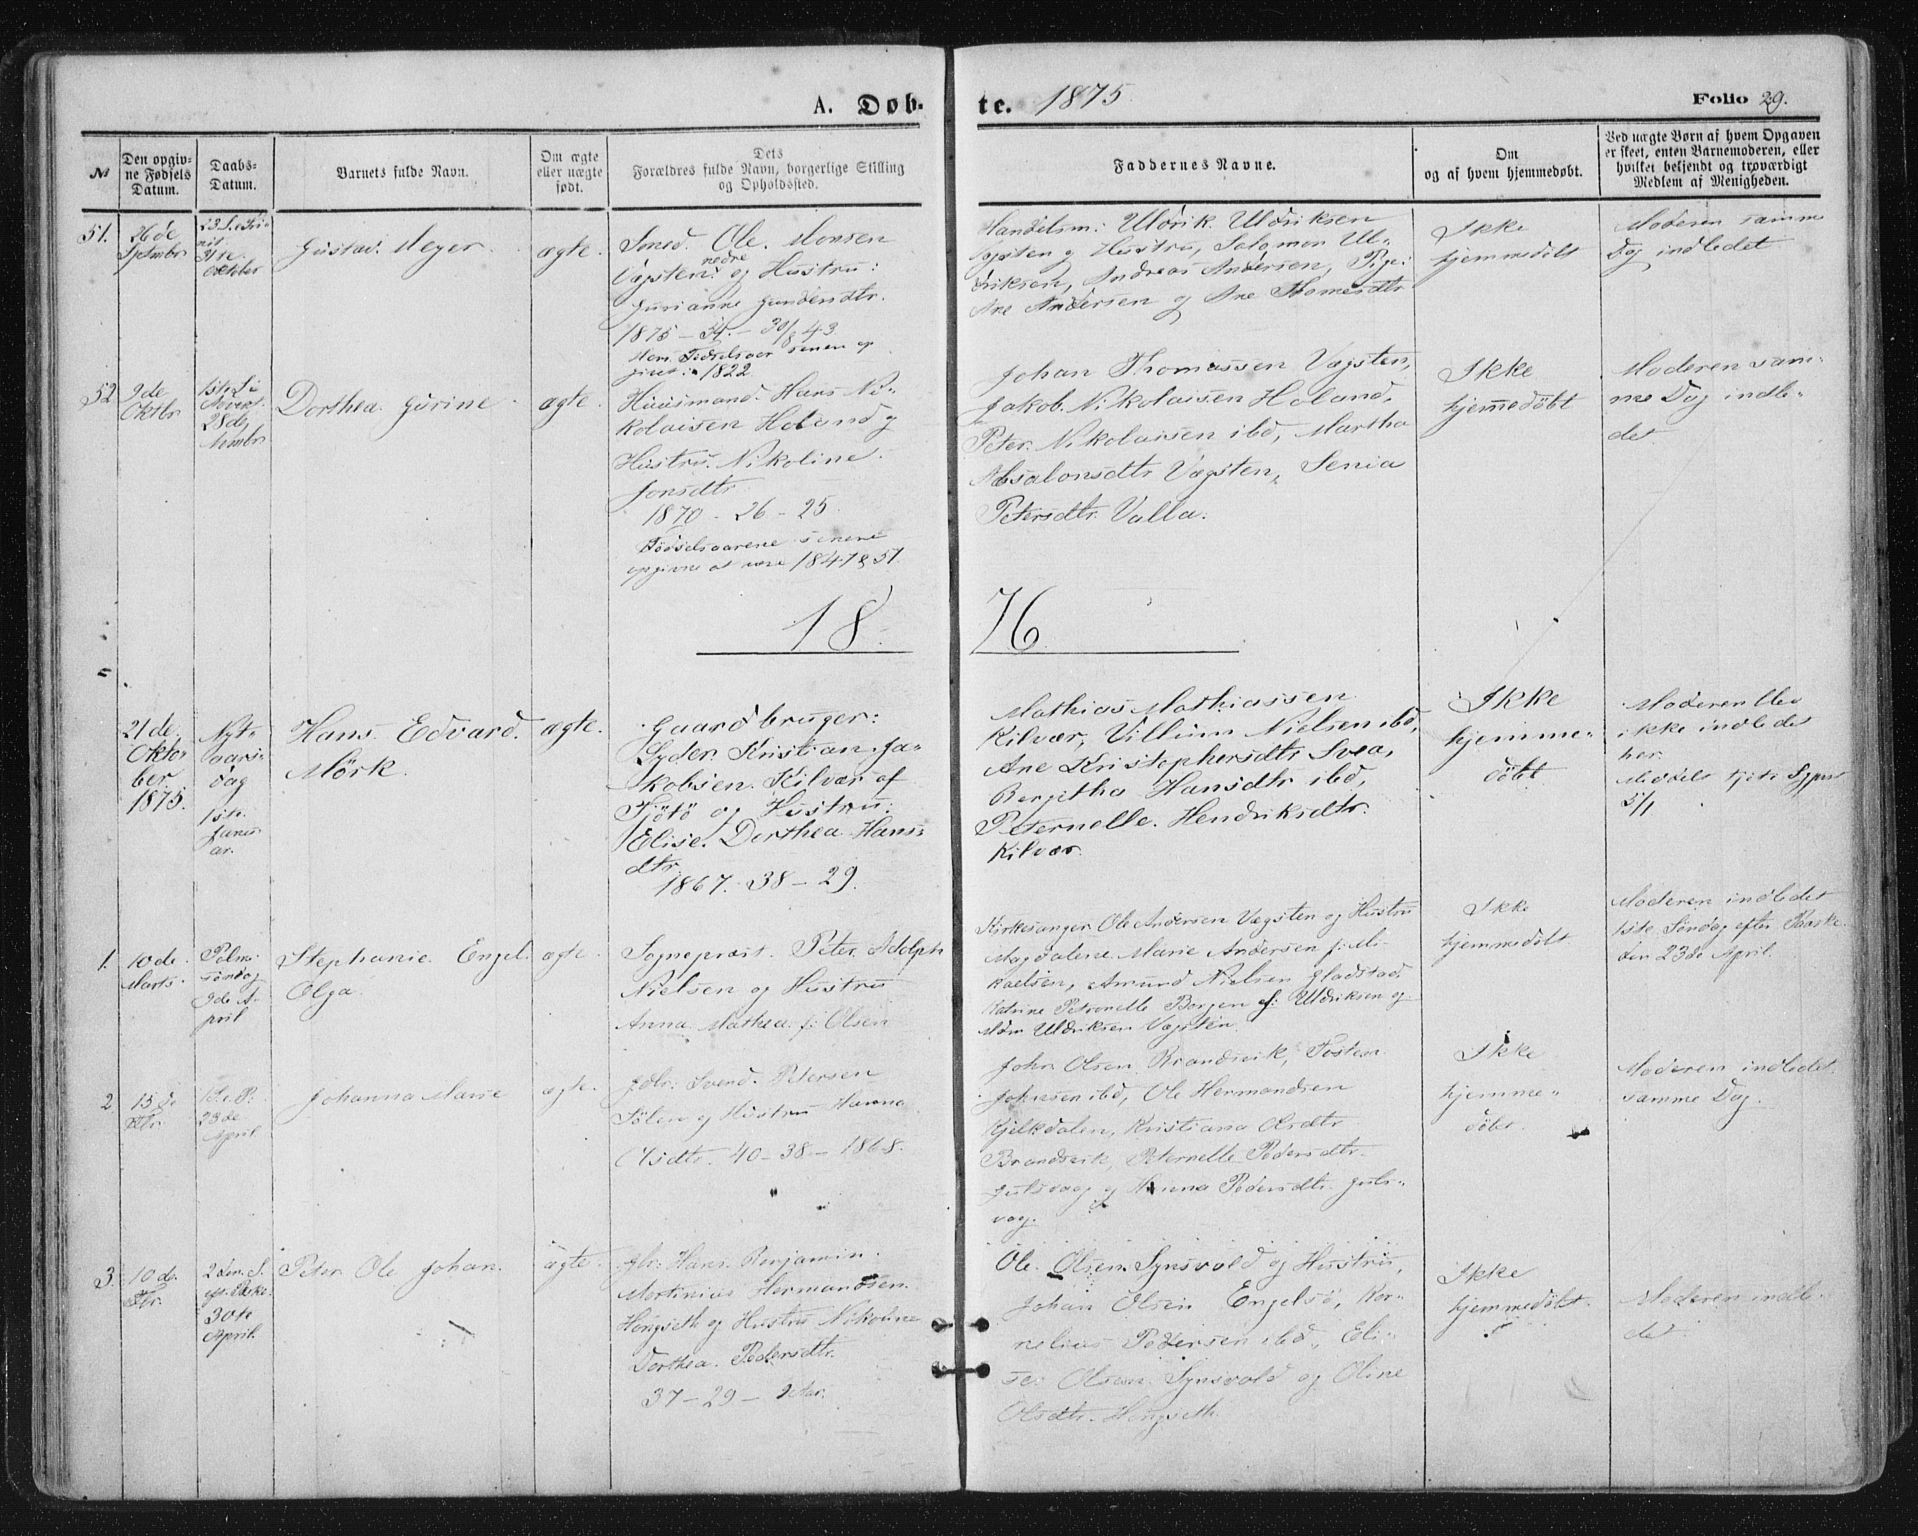 A. Døb-
te. 1875.
Folio 29.
№
Den opgiv-
ne Fødsels
Datum.
Daabs-
Datum.
Barnets fulde Navn.
Om ægte
eller uægte
født.
Dets
Forældres fulde Navn, borgerlige Stilling
og Opholdssted.
Faddernes Navne.
Om
og af hvem hjemmedøbt.
Ved uægte Børn af hvem Opgaven
er skeet, enten Barnemoderen, eller
hvilket bekjendt og troværdigt
Medlem af Menigheden.
51.
26de
Septmbr
31te
Oktober
Gustav Meyer.
ægte.
Smed. Ole. Monsen
nedre
Vægsten og Hustru:
Gurianne
1875 – 34 – 30/8 43.
Fødselsaar senere op
givet: 1822.
Handelsm: Uldrik Uldriksen
Vægsten og Hustru, Salomon Ul-
driksen, Andreas Andersen, Pige:
Ane Andersen og Ane Thomesdtr
Ikke
hjemmedøbt
Moderen samme
Dag indledet
52
9de
Oktbr.
1ste S. i
Advent
28de
Novmbr
Dorthea Gurine
ægte.
Huusmand. Hans Ni-
kolaisen Holand og
Hustru. Nikoline.
Jonsdtr.
1870 – 26 – 25.
Fødselsaarene senere
opgivne at være 1847 & 51.
Johan Thomassen Vægsten,
Jakob. Nikolaisen Holand,
Peter. Nikolaisen ibd, Martha
Absalonsdtr Vægsten, Senia
Petersdtr. Valla.
Ikke
hjemmedøbt
Moderen sam-
me Dag indle-
det.
18
76.
21de
Oktο-
ber
1875.
Nyt-
aars-
dag
1ste
Janu-
ar.
Hans. Edvard.
Mörk.
ægte.
Gaardbruger:
Lyder. Kristian Ja-
kobsen. Kilvær af
Tjötö og Hustru:
Elise. Dorthea Hans-
dtr.
1867. 38 – 29.
Mathias Mathiassen
Kilvær, Villum Nielsen ibd,
Ane Kristophersdtr Svea,
Bergitha Hansdtr ibd,
Peternelle. Hendriksdtr.
Kilvær.
Ikke
hjemme-
döbt
Moderen blev
ikke indledet
her.
Meddelt Tjötö
5/1
1.
10de
Marts.
Palme
söndag
9de A-
pril
Stephanie Engel
Olga.
ægte.
Sognepræst. Peter Adolph
Nielsen og Hustru
Anna Mathea f: Olsen
Kirkesanger Ole Andersen Vægsten og Hustru
Magdalene Marie Andersen f: Mi-
kaelsen, Amund Nielsen Gladstad,
Katrine Petronelle Borgen f: Uldriksen og
Uldriksen Vægsten.
Ikke
hjemmedøbt
Moderen indledet
1ste Söndag efter Paaske
den 23de April.
2
15de
Fbr.
23de
April
Johanna Marie
ægte.
Gbr: Svend. Petersen
Sölen og Hustru Hanna
40 – 38 – 1868.
Johs Olsen Brandsvik, Tosten
Johnsen ibd, Ole Hermandsen
Kjelkdalen, Kristiana Olsdtr.
Brandsvik, Peternelle Pedersdtr.
Julsvaag og Hanna Pedersdtr. Juls-
vaag.
Ikke
hjemme-
döbt.
Moderen indledet
samme Dag.
3
10de
Fbr.
2den S.
eft. Paske.
30te
April.
Peter Ole Johan.
ægte.
Gbr: Hans. Benjamin.
Mortinius Hermandsen
Hongseth og Hustru Nikoline
Dorthea. Pedersdtr.
37 – 29 –
Ole. Olsen Synsvold og Hustru,
Johan Olsen Engelsö, Kor-
nelius Pedersen ibd, Eli-
se. Olsen. Synsvold og Oline
Olsdtr. Hongseth.
Ikke
hjemmedøbt.
Moderen indle-
det